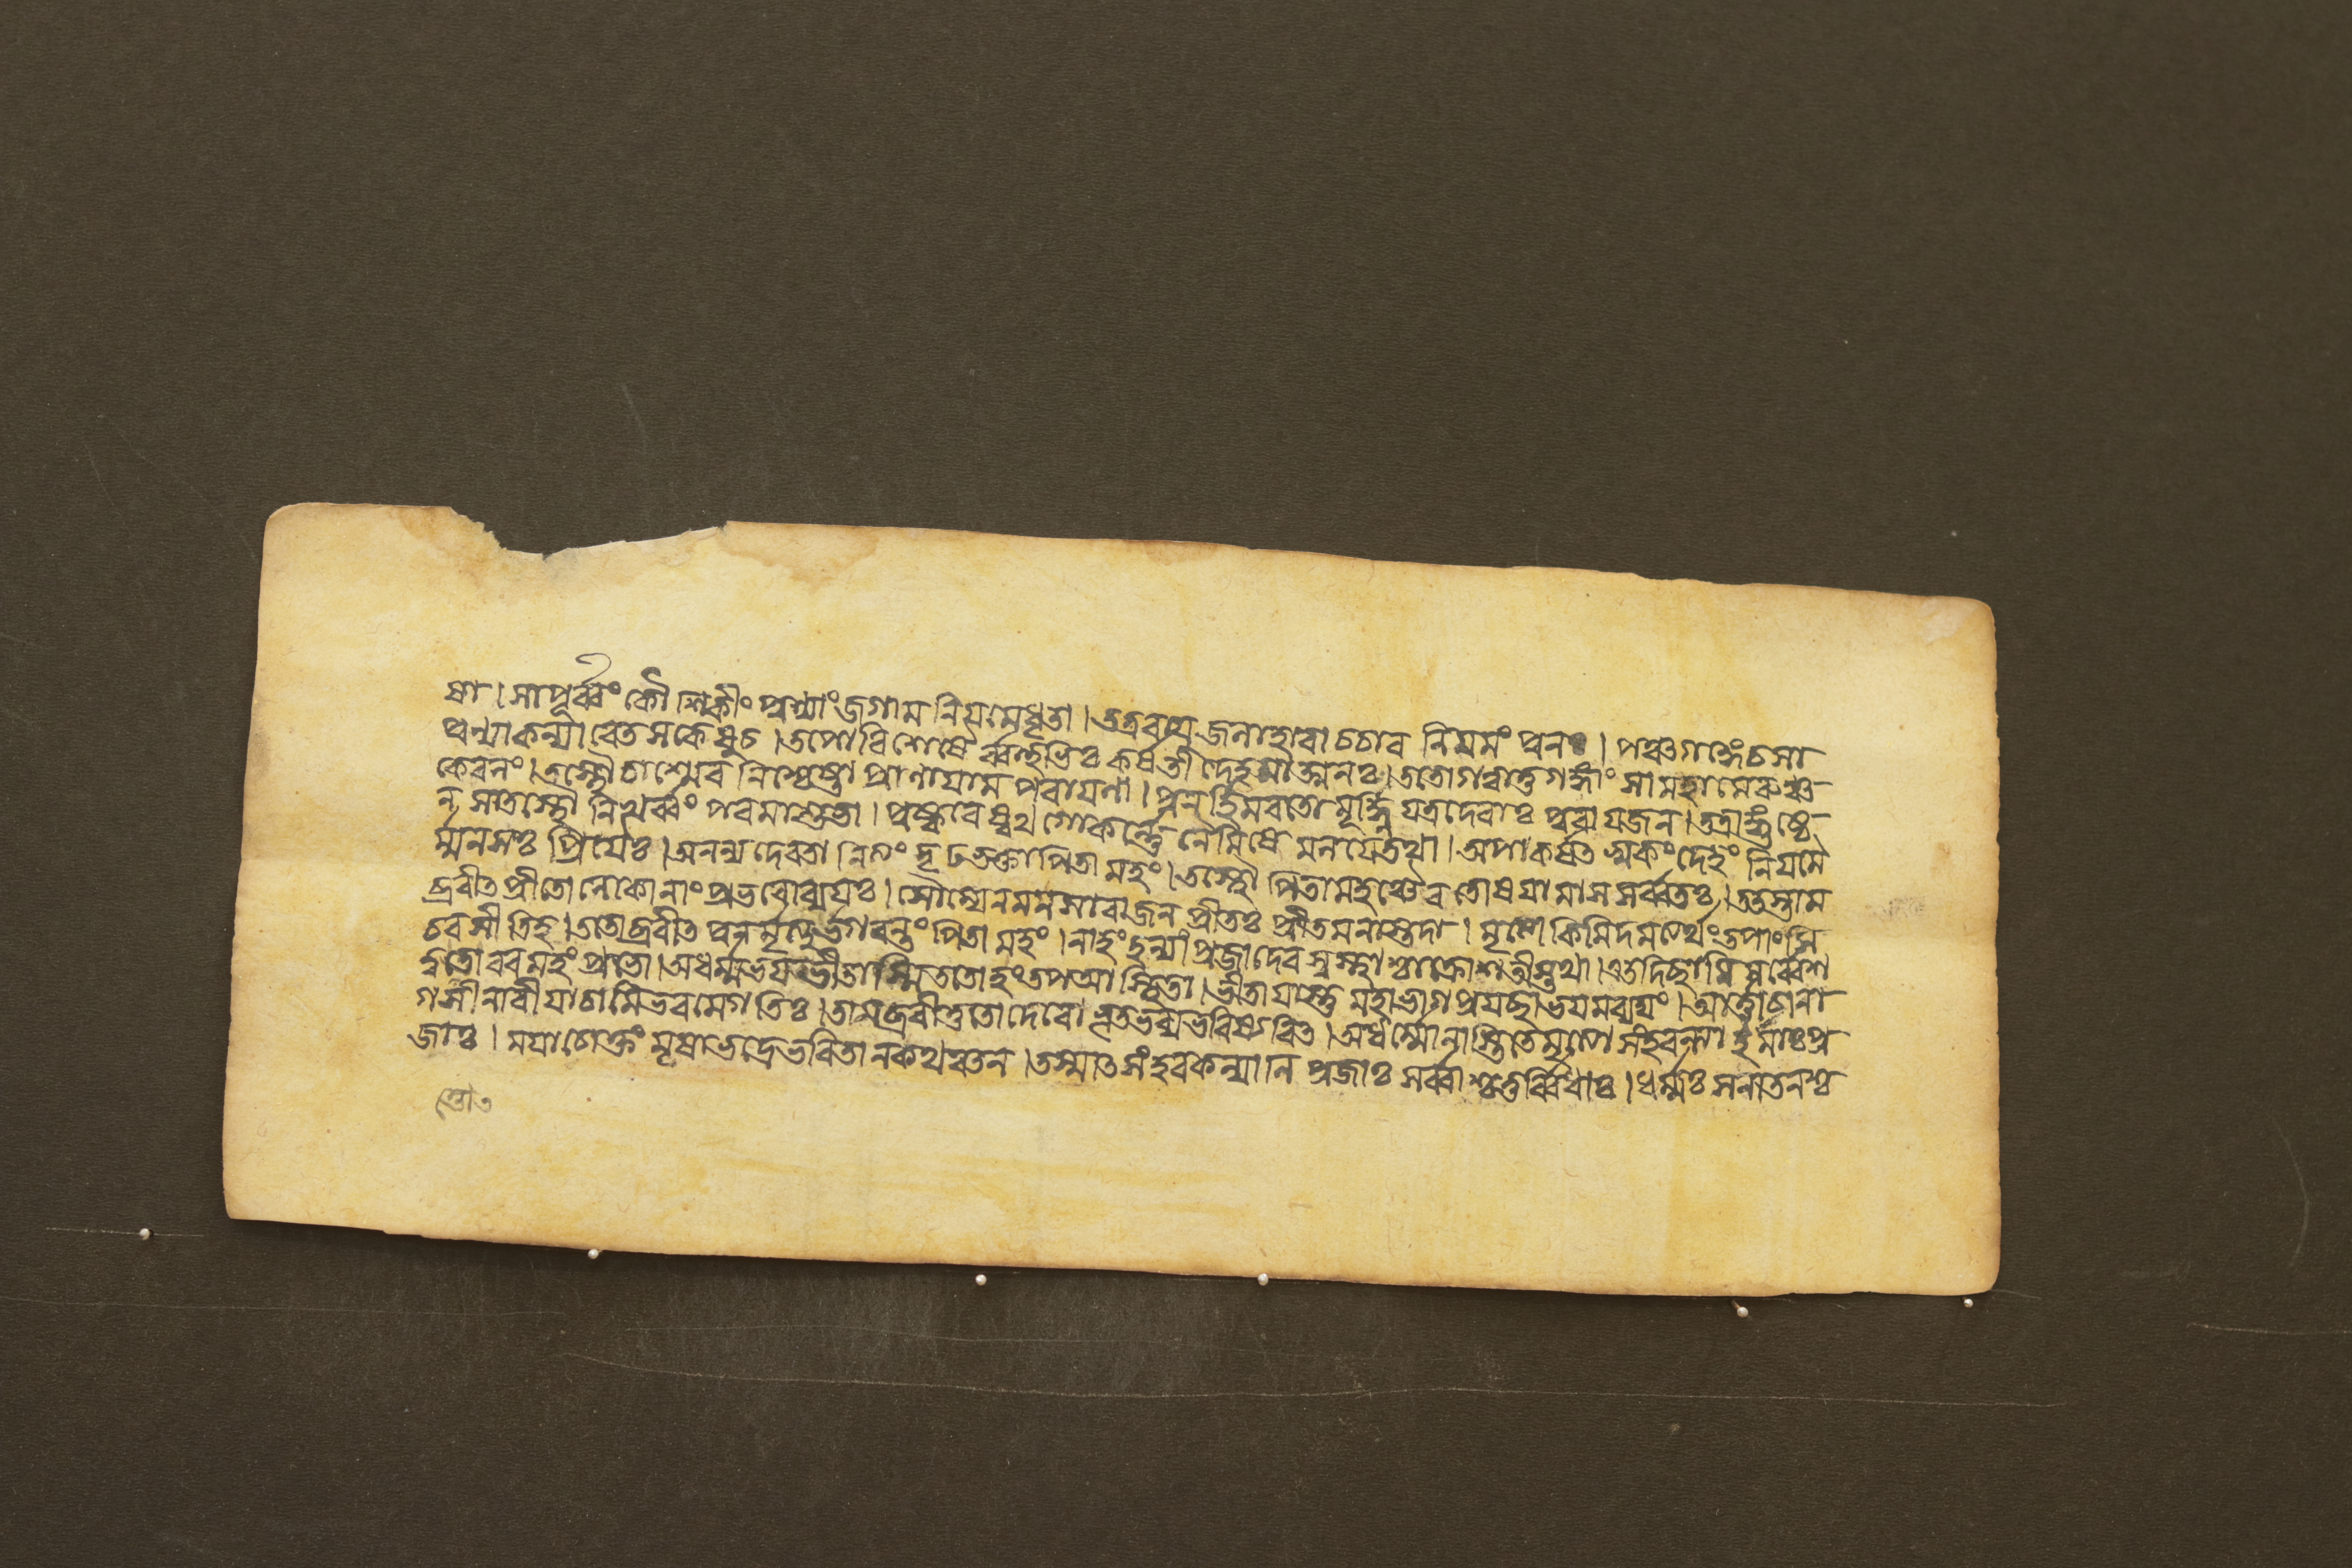 ষ্ঠা। সাপূর্ব্বং কৌশিকীং পুণ্যাং জগাম নিয়মেধৃতা। তত্রবায়ুজলাহারা চচার নিয়মং পুনঃ। পঞ্চগঙ্গেচসা
পুণ্যাকন্যা বেতসকেষুচ। তপোবিশেষৈর্ব্বহুভিঃ কর্ষন্তী দেহমাত্মনঃ। ততোগত্বাতুগঙ্গাং সামহামেরুঞ্চ
কেবলং। তস্থৌচাশ্মেব নিশ্চেষ্টা প্রাণায়াম পরায়ণা। পুনর্হিমবতোমূর্দ্ধ্নি যত্রদেবাঃ পুরায়জন। তত্রাঙ্গুষ্ঠে
ন সাতস্থৌ নিখর্ব্বং পরমাশুভা। পুষ্করেষ্বথ গোকর্ন্নে নৈমিষে মলয়েতথা। অপাকর্ষত স্বকংদেহং নিয়মৈ
র্ম্মনসঃ প্রিয়ৈঃ। অনন্যদেবতা নিত্যং দৃঢভক্তাপিতামহং। তস্থৌ পিতামহঞ্চৈব তোষয়ামাস সর্ব্বতঃ। ততস্তাম
ব্রবীতপ্রীতো লোকানাং প্রভবোব্যয়ঃ। সৌম্যেনমনসারাজন প্রীতঃ প্রীতমনাস্তদা। মৃত্যো কিমিদমত্যর্থং তপাংসি
চরসীতিহ। ততোব্রবীত পুনর্মৃত্যুর্ভগবন্তং পিতামহং। নাহং হন্যাং প্রজাদেব সুস্থাশ্চাক্রোশতীস্তথা। এতদিছামি সর্ব্বেশ
ত্বত্তো বরমহং প্রভো। অধর্ম্মভয়ভীতাস্মি ততোহং তপআস্থিতা। ভীতায়াস্তু মহাভাগ প্রয়ছাভয়মব্যয়ং। আর্ত্তাচানা
গসীনারী যাচামিভবমেগতিঃ। তামব্রবীত্ততোদেবো ভূতভব্যভবিষ্যবিত। অধর্ম্মোনাস্তিতেমৃত্যো সংহরন্ত্যা ইমাঃপ্র
জাঃ। ময়াচোক্তং মৃষাভদ্রেভবিতা নকথঞ্চন। তস্মাত সংহরকল্যানি প্রজাঃ সর্ব্বাশ্চতুর্ব্বিধাঃ। ধর্ম্মঃ সনাতনশ্চ